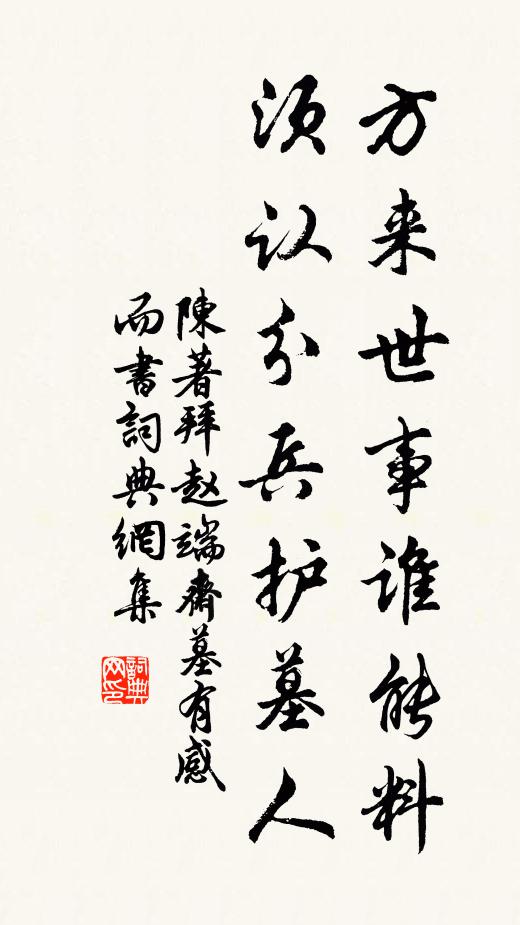 方来世事谁能料
须认分兵护墓人
陳著拜赵端齋墓有感
而書詞典網集
詞典網印